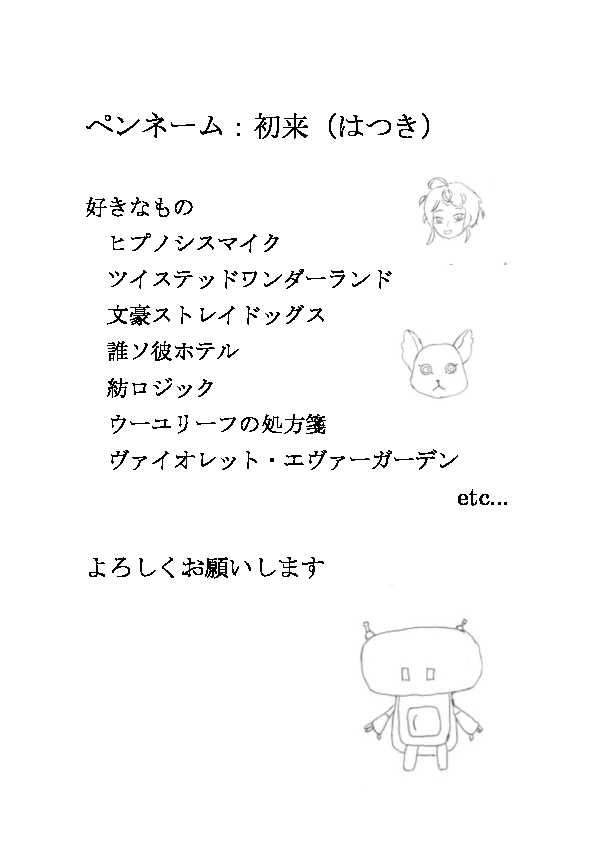 ペンネーム：初来（はつき）
好きなもの
ヒプノシスマイク
ツイステッドワンダーランド
文豪ストレイドッグス
誰ソ彼ホテル
紡ロジック
ウーユリーフの処方箋
ヴァイオレット・エヴァーガーデン
etc...
よろしくお願いします